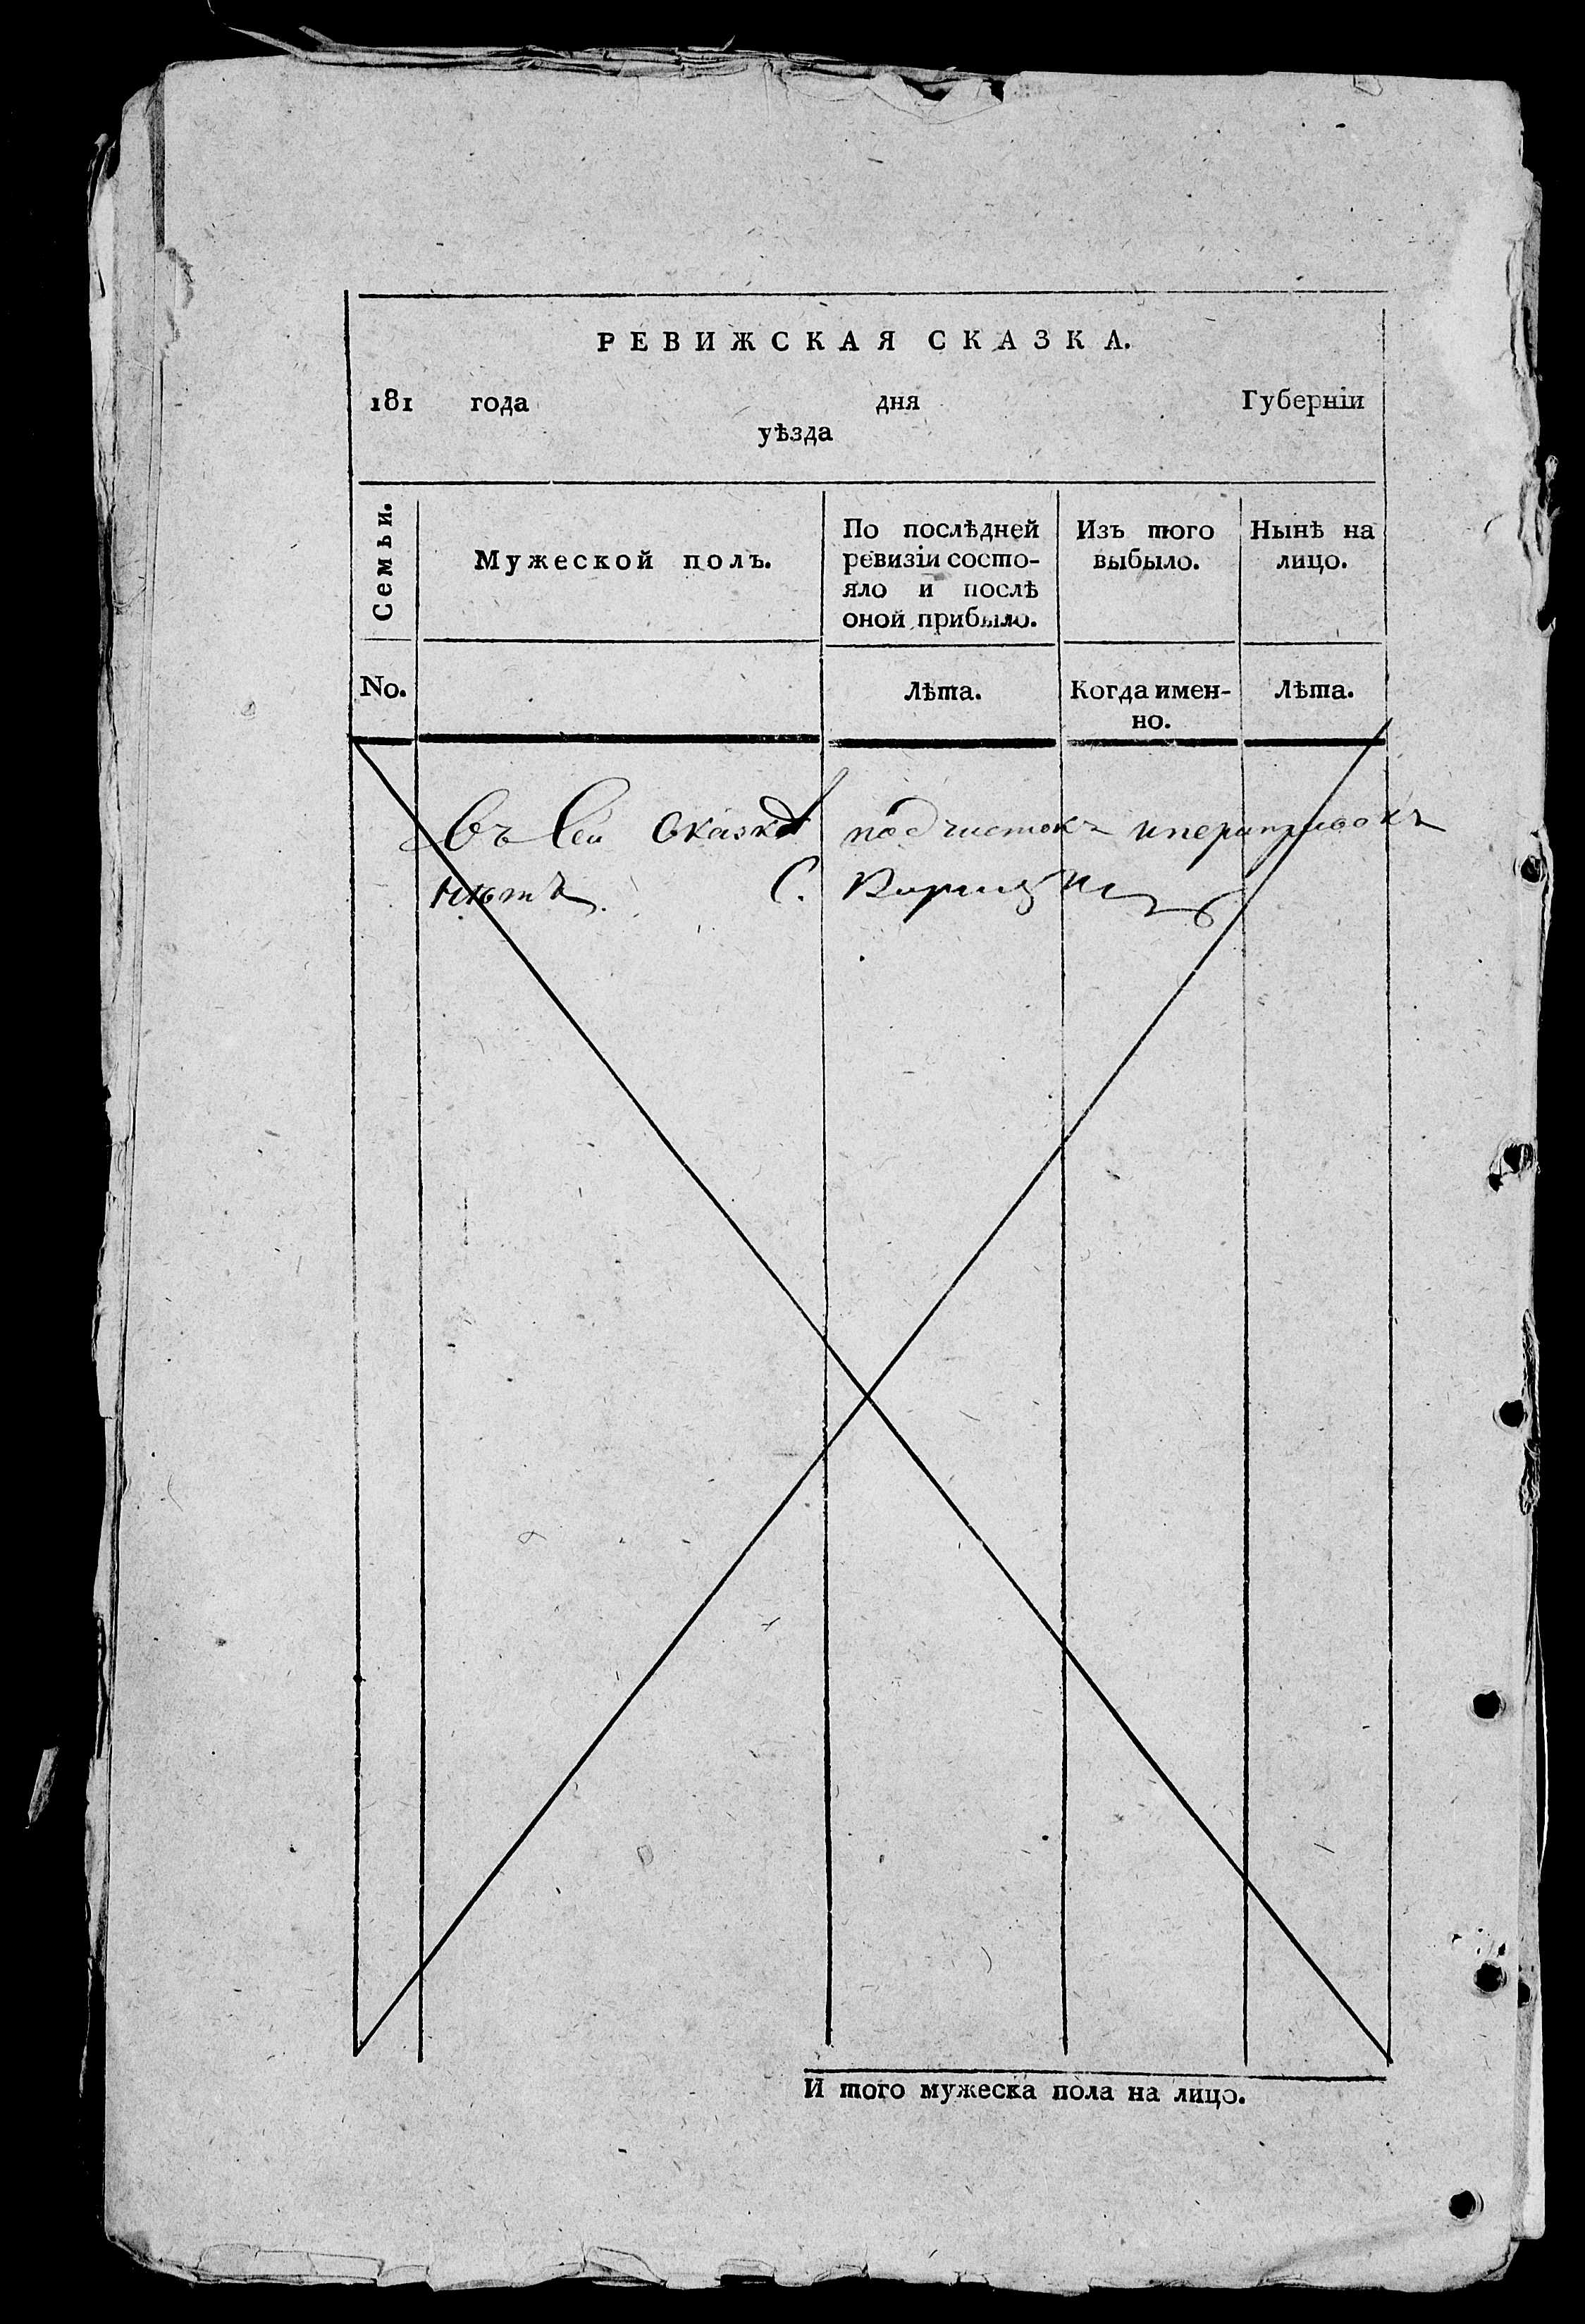 РЕВИЖСКАЯ СКАЗКА.
181 года дня Губерніи
уѣзда
Семьи.
Мужеской полъ.
По послѣдней
ревизіи состо-
яло и послѣ
оной прибыло.
Изъ того
выбыло.
Нынѣ на
лицо.
No.
Лѣта.
Когда имен-
но.
Лѣта.
Въ сей сказкѣ подчистокъ и
нѣтъ. С.
И того мужеска пола на лицо.